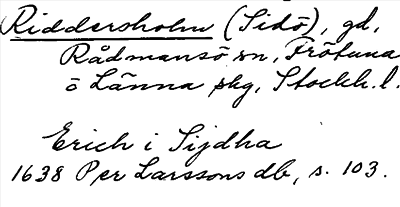 Riddersholm (Sidö), gd,
Rådmansö sn, Frötuna
o Länna skg, Stockh. l.
Erich i Sijdha
1638 Per Larssons db, s. 103.